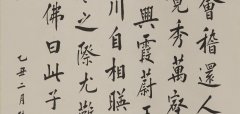 會稽還人
秀萬壑
興霞蔚王
川自相暎
之際尤難
佛曰此子
乙丑二月